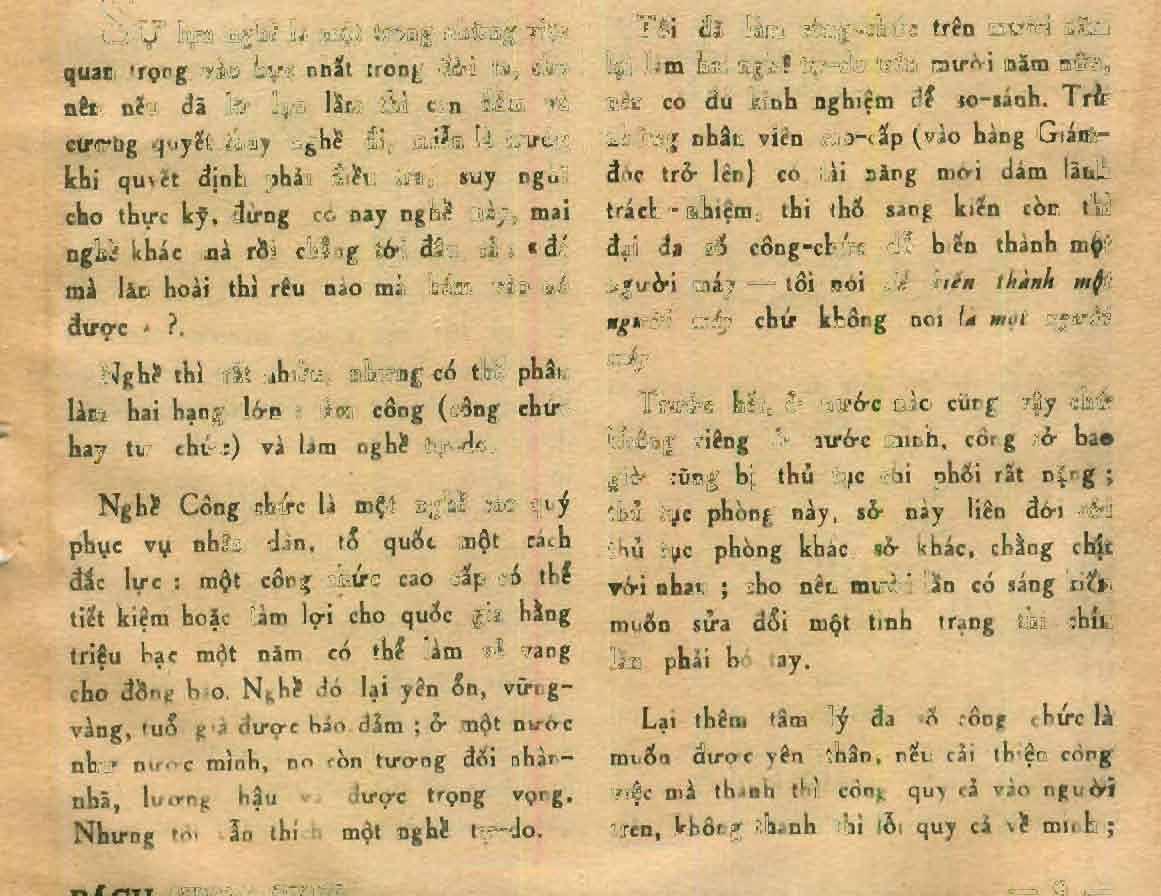 SỰ lựa nghề là một trong những việc
quan trọng vào bực nhất trong đời ta, cho
nên nếu đã lỡ lựa lầm thì can đảm và
cương quyết thay nghề đi, miễn là trước
khi quyết định phải điều tra, suy nghĩ
cho thực kỹ, đừng có nay nghề này, mai
nghề khác mà rồi chẳng tới đâu cả: « đá
mà lăn hoài thì rêu nào mà bám vào nó
được » ?.
Nghề thì rất nhiều, nhưng có thể phân
làm hai hạng lớn : làm công (công chức
hay tư chức) và làm nghề tự-do.
Nghề Công chức là một nghề cao quý
phục vụ nhân dân, tổ quốc một cách
đắc lực : một công chức cao cấp có thể
tiết kiệm hoặc làm lợi cho quốc gia hằng
triệu bạc một năm có thể làm vẻ vang
cho đồng bào. Nghề đó lại yên ổn, vững-
vàng, tuổi già được bảo đảm ; ở một nước
như nước mình, nó còn tương đối nhàn-
nhã, lương hậu và được trọng vọng.
Nhưng tôi vẫn thích một nghề tự-do.
Tôi đã làm công-chức trên mười năm
lại làm hai nghề tự-do trên mười năm nữa,
nên có đủ kinh nghiệm để so-sánh. Trừ
những nhân viên cao-cấp (vào hàng Giám-
đốc trở lên) có tài năng mới dám lãnh
trách-nhiệm, thi thố sáng kiến còn thì
đại đa số công-chức dễ biến thành một
người máy — tôi nói dễ biến thành một
người máy chứ không nói là một người
máy
Trước hết, ở nước nào cũng vậy chứ
không riêng ở nước mình, công sở bao
giờ cũng bị thủ tục chi phối rất nặng ;
thủ tục phòng này, sở này liên đới với
thủ tục phòng khác, sở khác, chằng chịt
với nhau ; cho nên mười lần có sáng kiến
muốn sửa đổi một tình trạng thì chín
lần phải bó tay.
Lại thêm tâm lý đa số công chức là
muốn được yên thân, nếu cải thiện công
việc mà thành thì công quy cả vào người
trên, không thành thì lỗi quy cả về mình ;
BÁCH